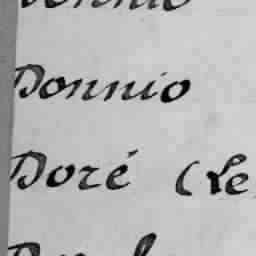 Donnio
Doré (Le